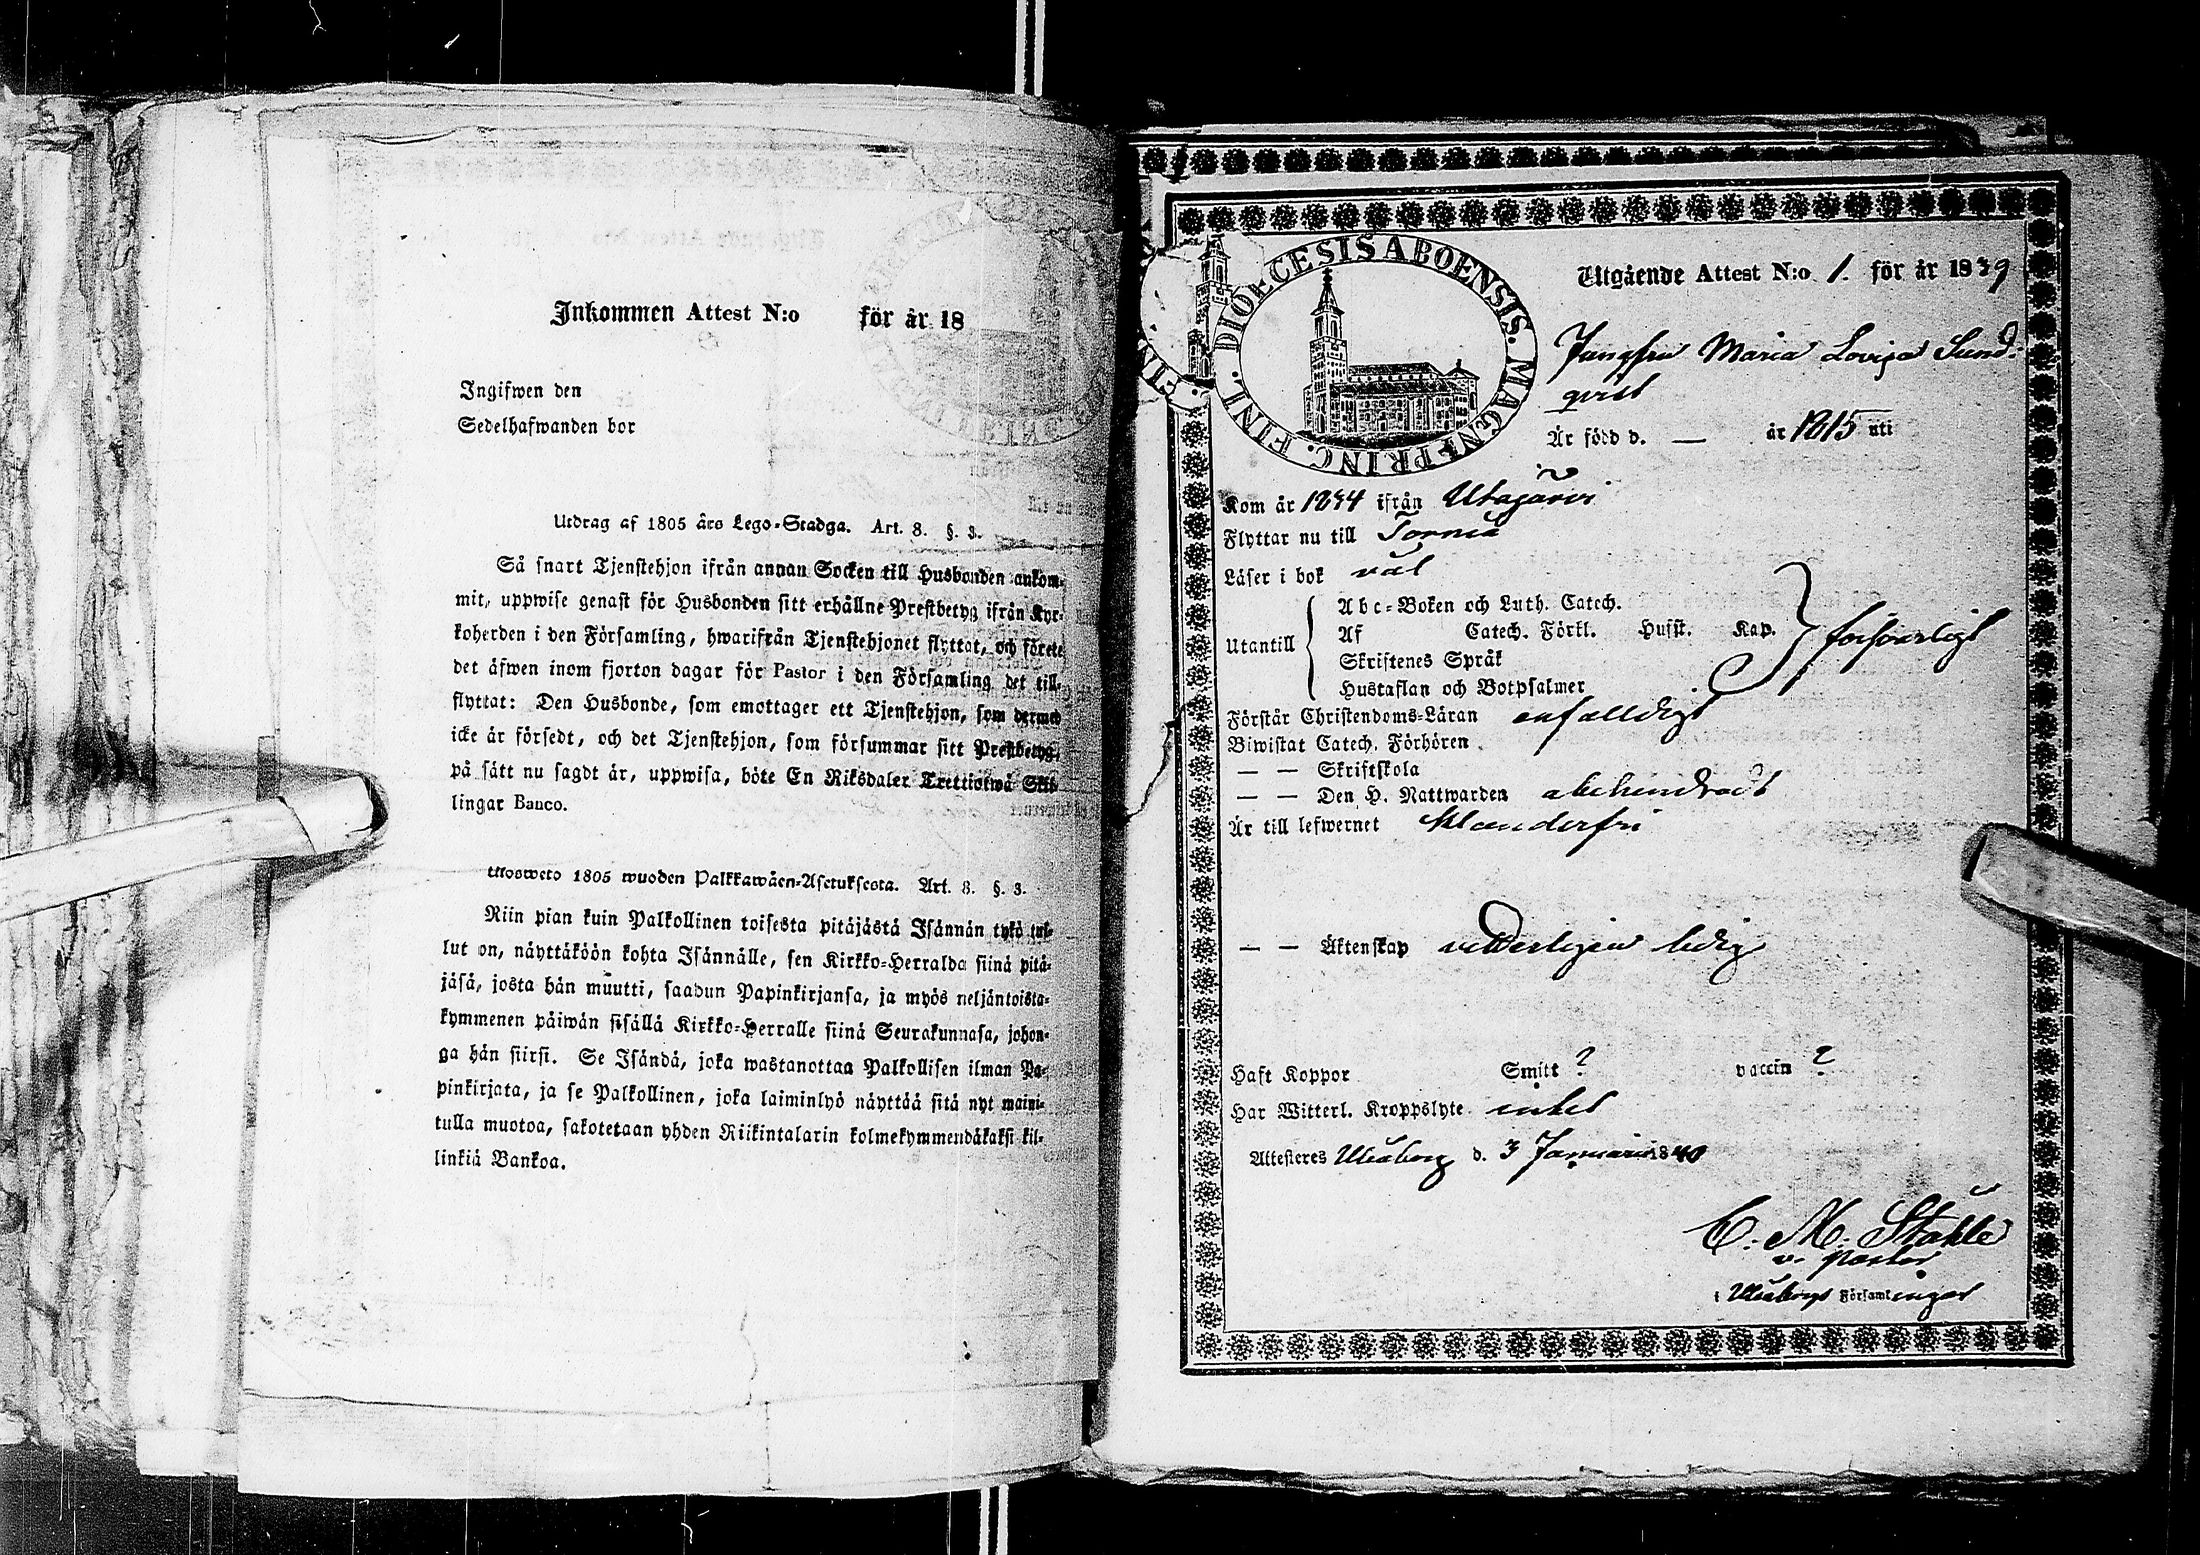 Inkommen Attest N:o för år 18
Ingifwen den
Sedelhafwanden bor
Utdrag af 1805 års Lego-Stadga. Art. 8. §. 3.
Så snart Tjenstehjon ifrån annan Socken till Husbonden ankom-
mit, uppwise genast för Husbonden sitt erhållne Prestbetyg ifrån Kyr-
koherden i den Församling, hwarifrån Tjenstehjonet flyttat, och förete
det äfwen inom fjorton dagar för Pastor i den Församling det till-
flyttat: Den Husbonde, som emottager ett Tjenstehjon, som dermed
icke är försedt, och det Tjenstehjon, som försummar sitt Prestbetyg,
på sätt nu sagdt är, uppwisa, böte En Riksdaler Trettiotwå Skil-
lingar Banco.
Ulosweto 1805 wuoden Palkkawäen-Asetuksesta. Art. 8. §. 3.
Niin pian kuin Palkollinen toisesta pitäjästä Isännän tykö tul-
lut on, näyttäköön kohta Isännälle, sen Kirkko-Herralda siinä pitä-
jäsä, josta hän muutti, saadun Papinkirjansa, ja myös neljäntoista-
kymmenen päiwän sisällä Kirkko-Herralle siinä Seurakunnasa, johon-
ga hän siirsi. Se Isändä, joka wastanottaa Palkollisen ilman Pa-
pinkirjata, ja se Palkollinen, joka laiminlyö näyttää sitä nyt maini-
tulla muotoa, sakotetaan yhden Riikintalarin kolmekymmendäkaksi kil-
linkiä Bankoa.
DIOECESIS ABOENSIS. MAGNI PRINC. FINL.
Utgående Attest N:o 1. för år 1839
Jungfru Maria Lovisa Sund-
qvist
Är född d. — år 1815 uti
Kom år 1834 ifrån Utajärvi
Flyttar nu till Torneå
Läser i bok väl
Utantill
Abc-Boken och Luth. Catech.
Af Catech. Förkl. Husst. Kap.
Skriftenes Språk
Hustaflan och Botpsalmer
försvarligt
Förstår Christendoms-Läran enfalldigt
Biwistat Catech. Förhören
— — Skriftskola
— — Den H. Nattwarden obehindradt
Är till lefwernet Klanderfri
— — Äktenskap vitterligen ledig
Haft Koppor Smitt ? vaccin ?
Har Witterl. Kroppslyte intet
Attesteres Uleåborg d. 3 Januarii 1840
C. M. Ståhle
v. pastor
i Uleåborgs Församlingar